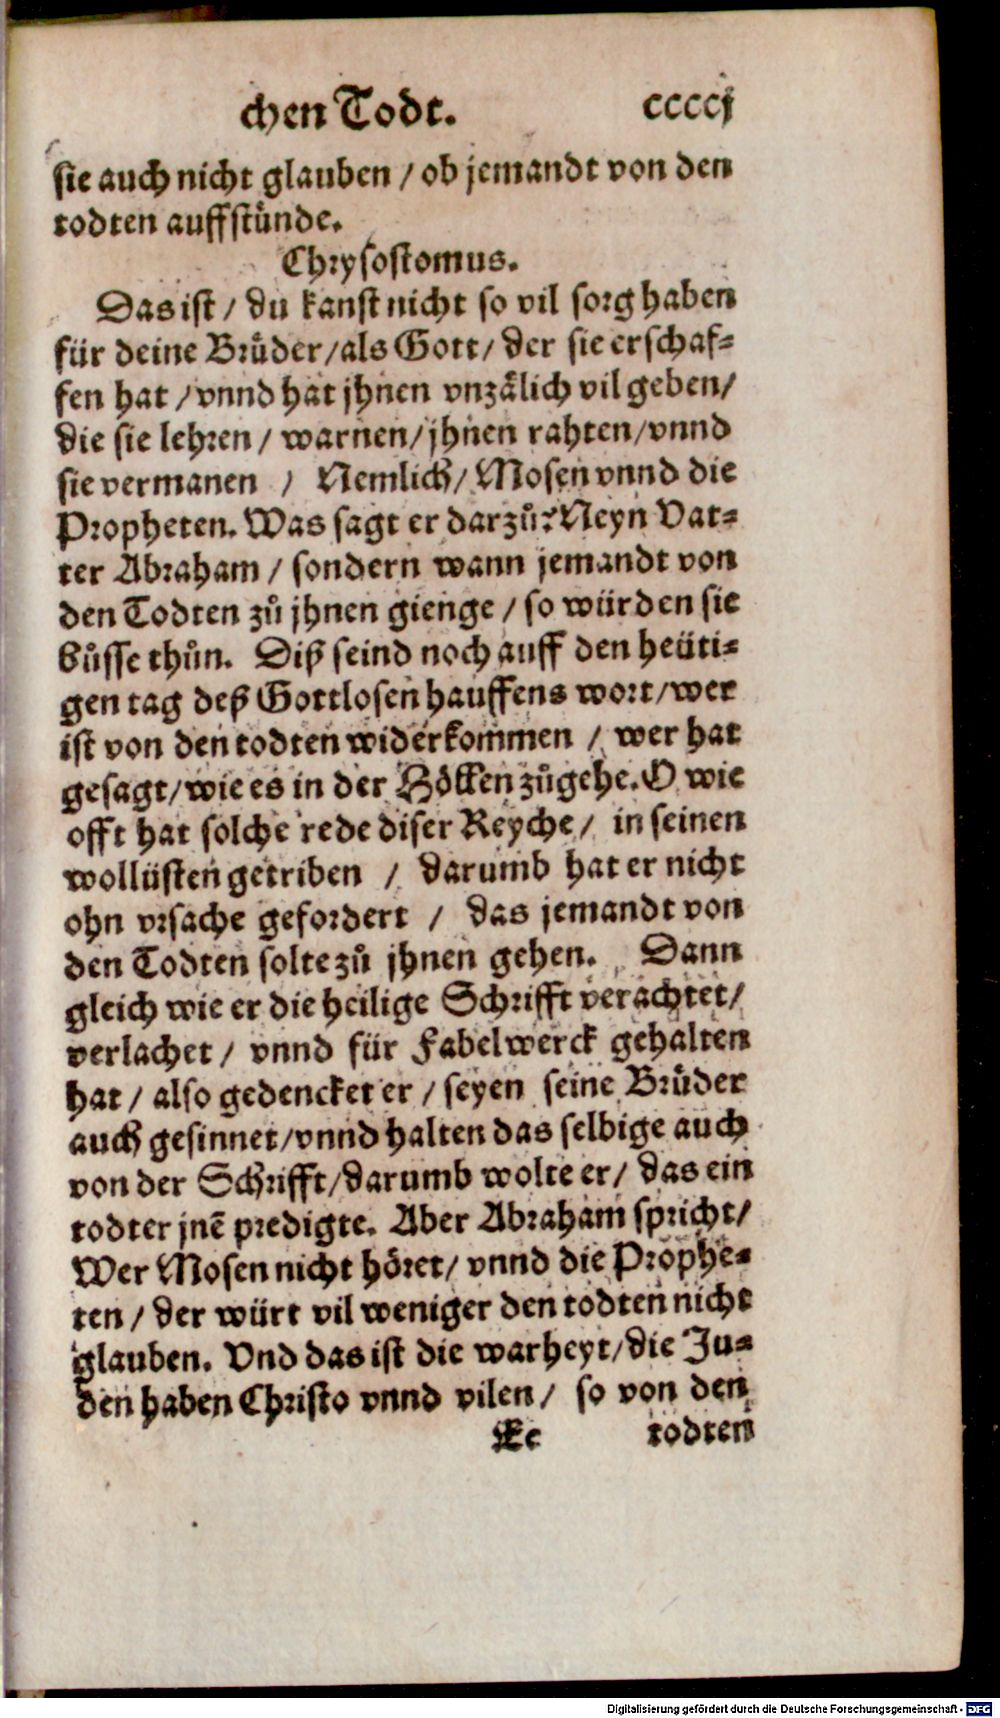 chen Todt. ccccj
sie auch nicht glauben / ob jemandt von den
todten auffstünde.
Chrysostomus.
Das ist / du kanst nicht so vil sorg haben
für deine Brůder / als Gott / der sie erschaf-
fen hat / vnnd hat jhnen vnzälich vil geben /
die sie lehren / warnen / jhnen rahten / vnnd
sie vermanen / Nemlich / Mosen vnnd die
Propheten. Was sagt er darzů? Neyn Vat-
ter Abraham / sondern wann jemandt von
den Todten zů jhnen gienge / so würden sie
bůsse thůn. Diß seind noch auff den heüti-
gen tag deß Gottlosen hauffens wort / wer
ist von den todten widerkommen / wer hat
gesagt / wie es in der Höllen zůgehe. O wie
offt hat solche rede diser Reyche / in seinen
wollüsten getriben / darumb hat er nicht
ohn vrsache gefordert / das jemandt von
den Todten solte zů jhnen gehen. Dann
gleich wie er die heilige Schrifft verachtet /
verlachet / vnnd für Fabelwerck gehalten
hat / also gedencket er / seyen seine Brůder
auch gesinnet / vnnd halten das selbige auch
von der Schrifft / darumb wolte er / das ein
todter jnē predigte. Aber Abraham spricht /
Wer Mosen nicht höret / vnnd die Prophe-
ten / der würt vil weniger den todten nicht
glauben. Vnd das ist die warheyt / die Ju-
den haben Christo vnnd vilen / so von den
Ee todten
Digitalisierung gefördert durch die Deutsche Forschungsgemeinschaft - DFG